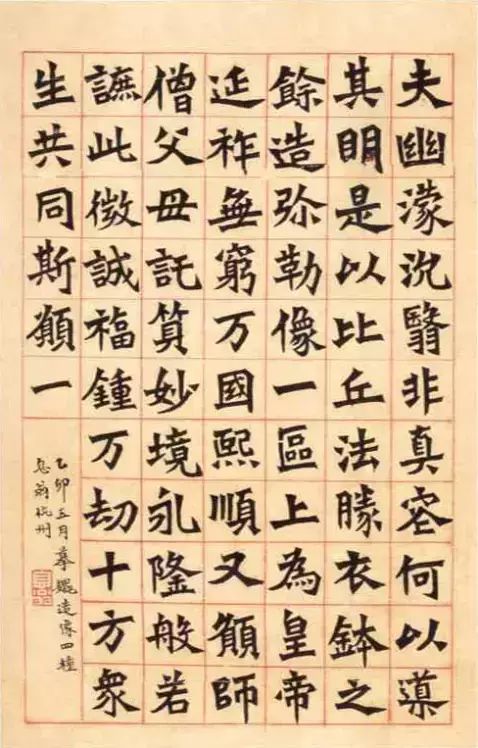 夫幽濛沉翳非真容何以導
其明是以比丘法勝衣鉢之
餘造弥勒像一區上為皇帝
延祚無窮万國熙順又願師
僧父母託筭妙境永隆般若
謶此微誠福鍾万劫十方衆
生共同斯願一
乙卯五月摹魏造像四種
息翁杭州